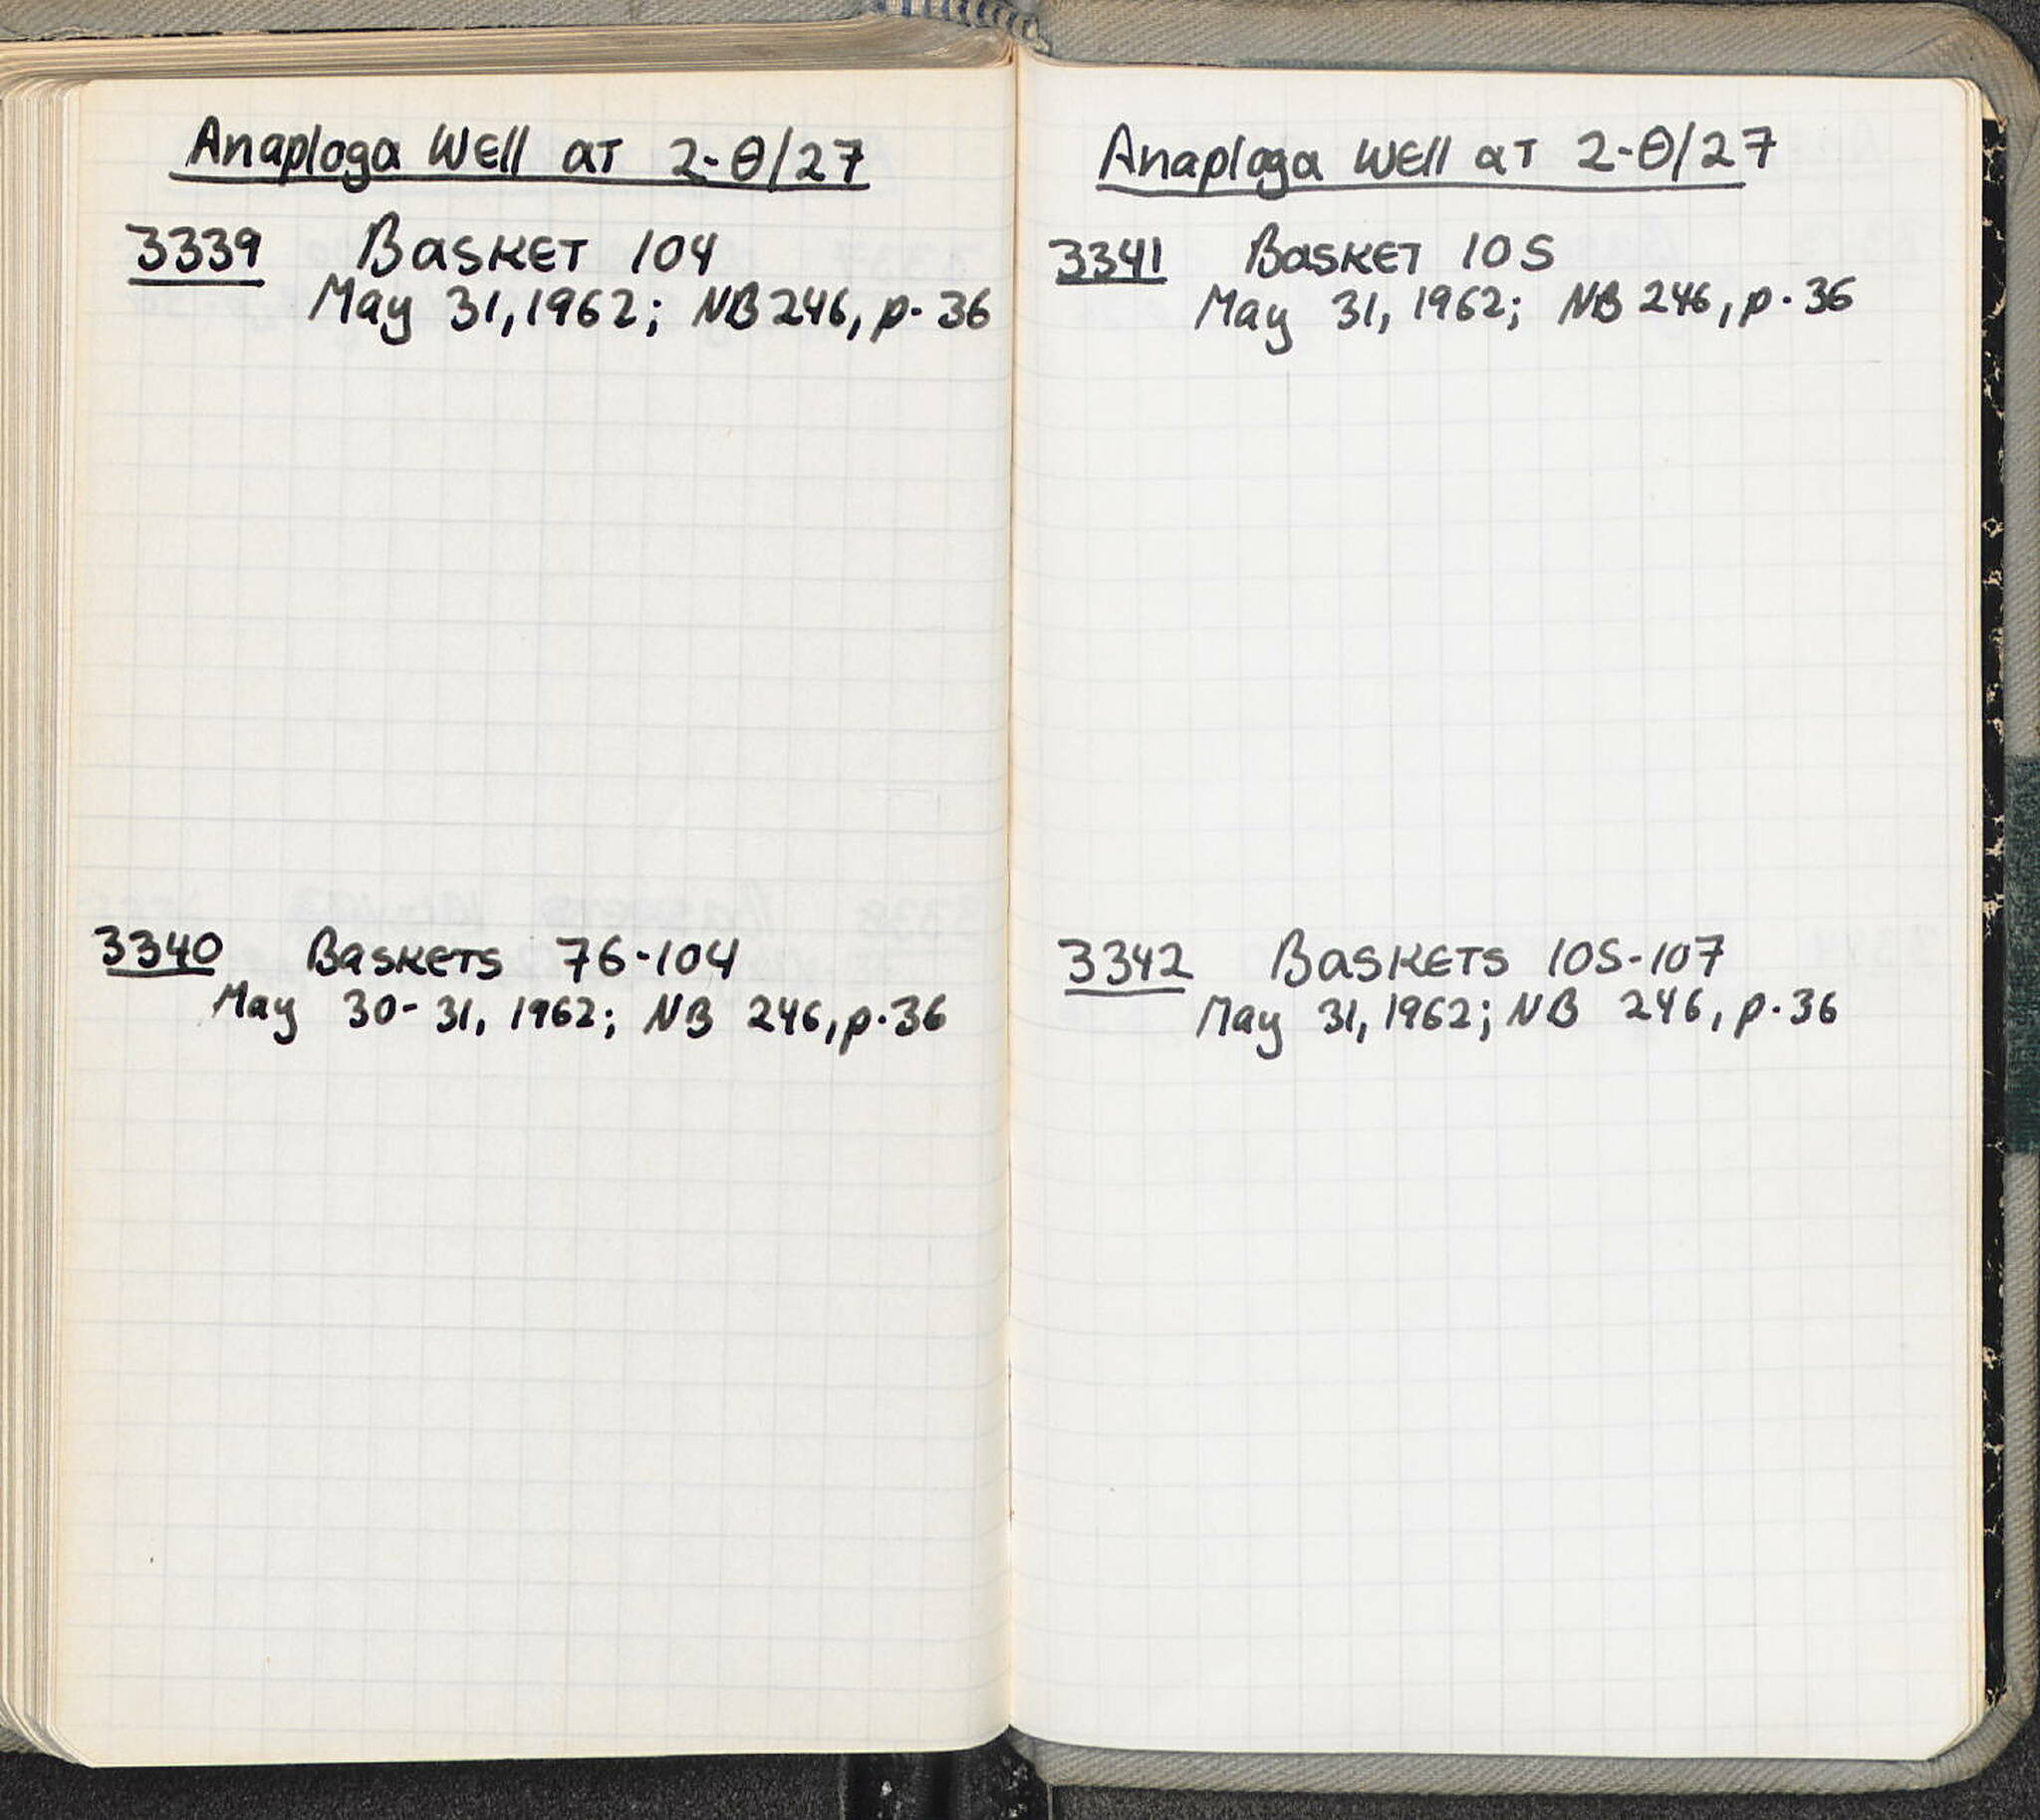 Anaploga Well at 2-θ/27
3339 Basket 104
May 31, 1962; NB 246, p. 36
3340 Baskets 76-104
May 30-31, 1962; NB 246, p. 36
Anaploga Well at 2-θ/27
3341 Basket 105
May 31, 1962; NB 246, p. 36
3342 Baskets 105-107
May 31, 1962; NB 246, p. 36